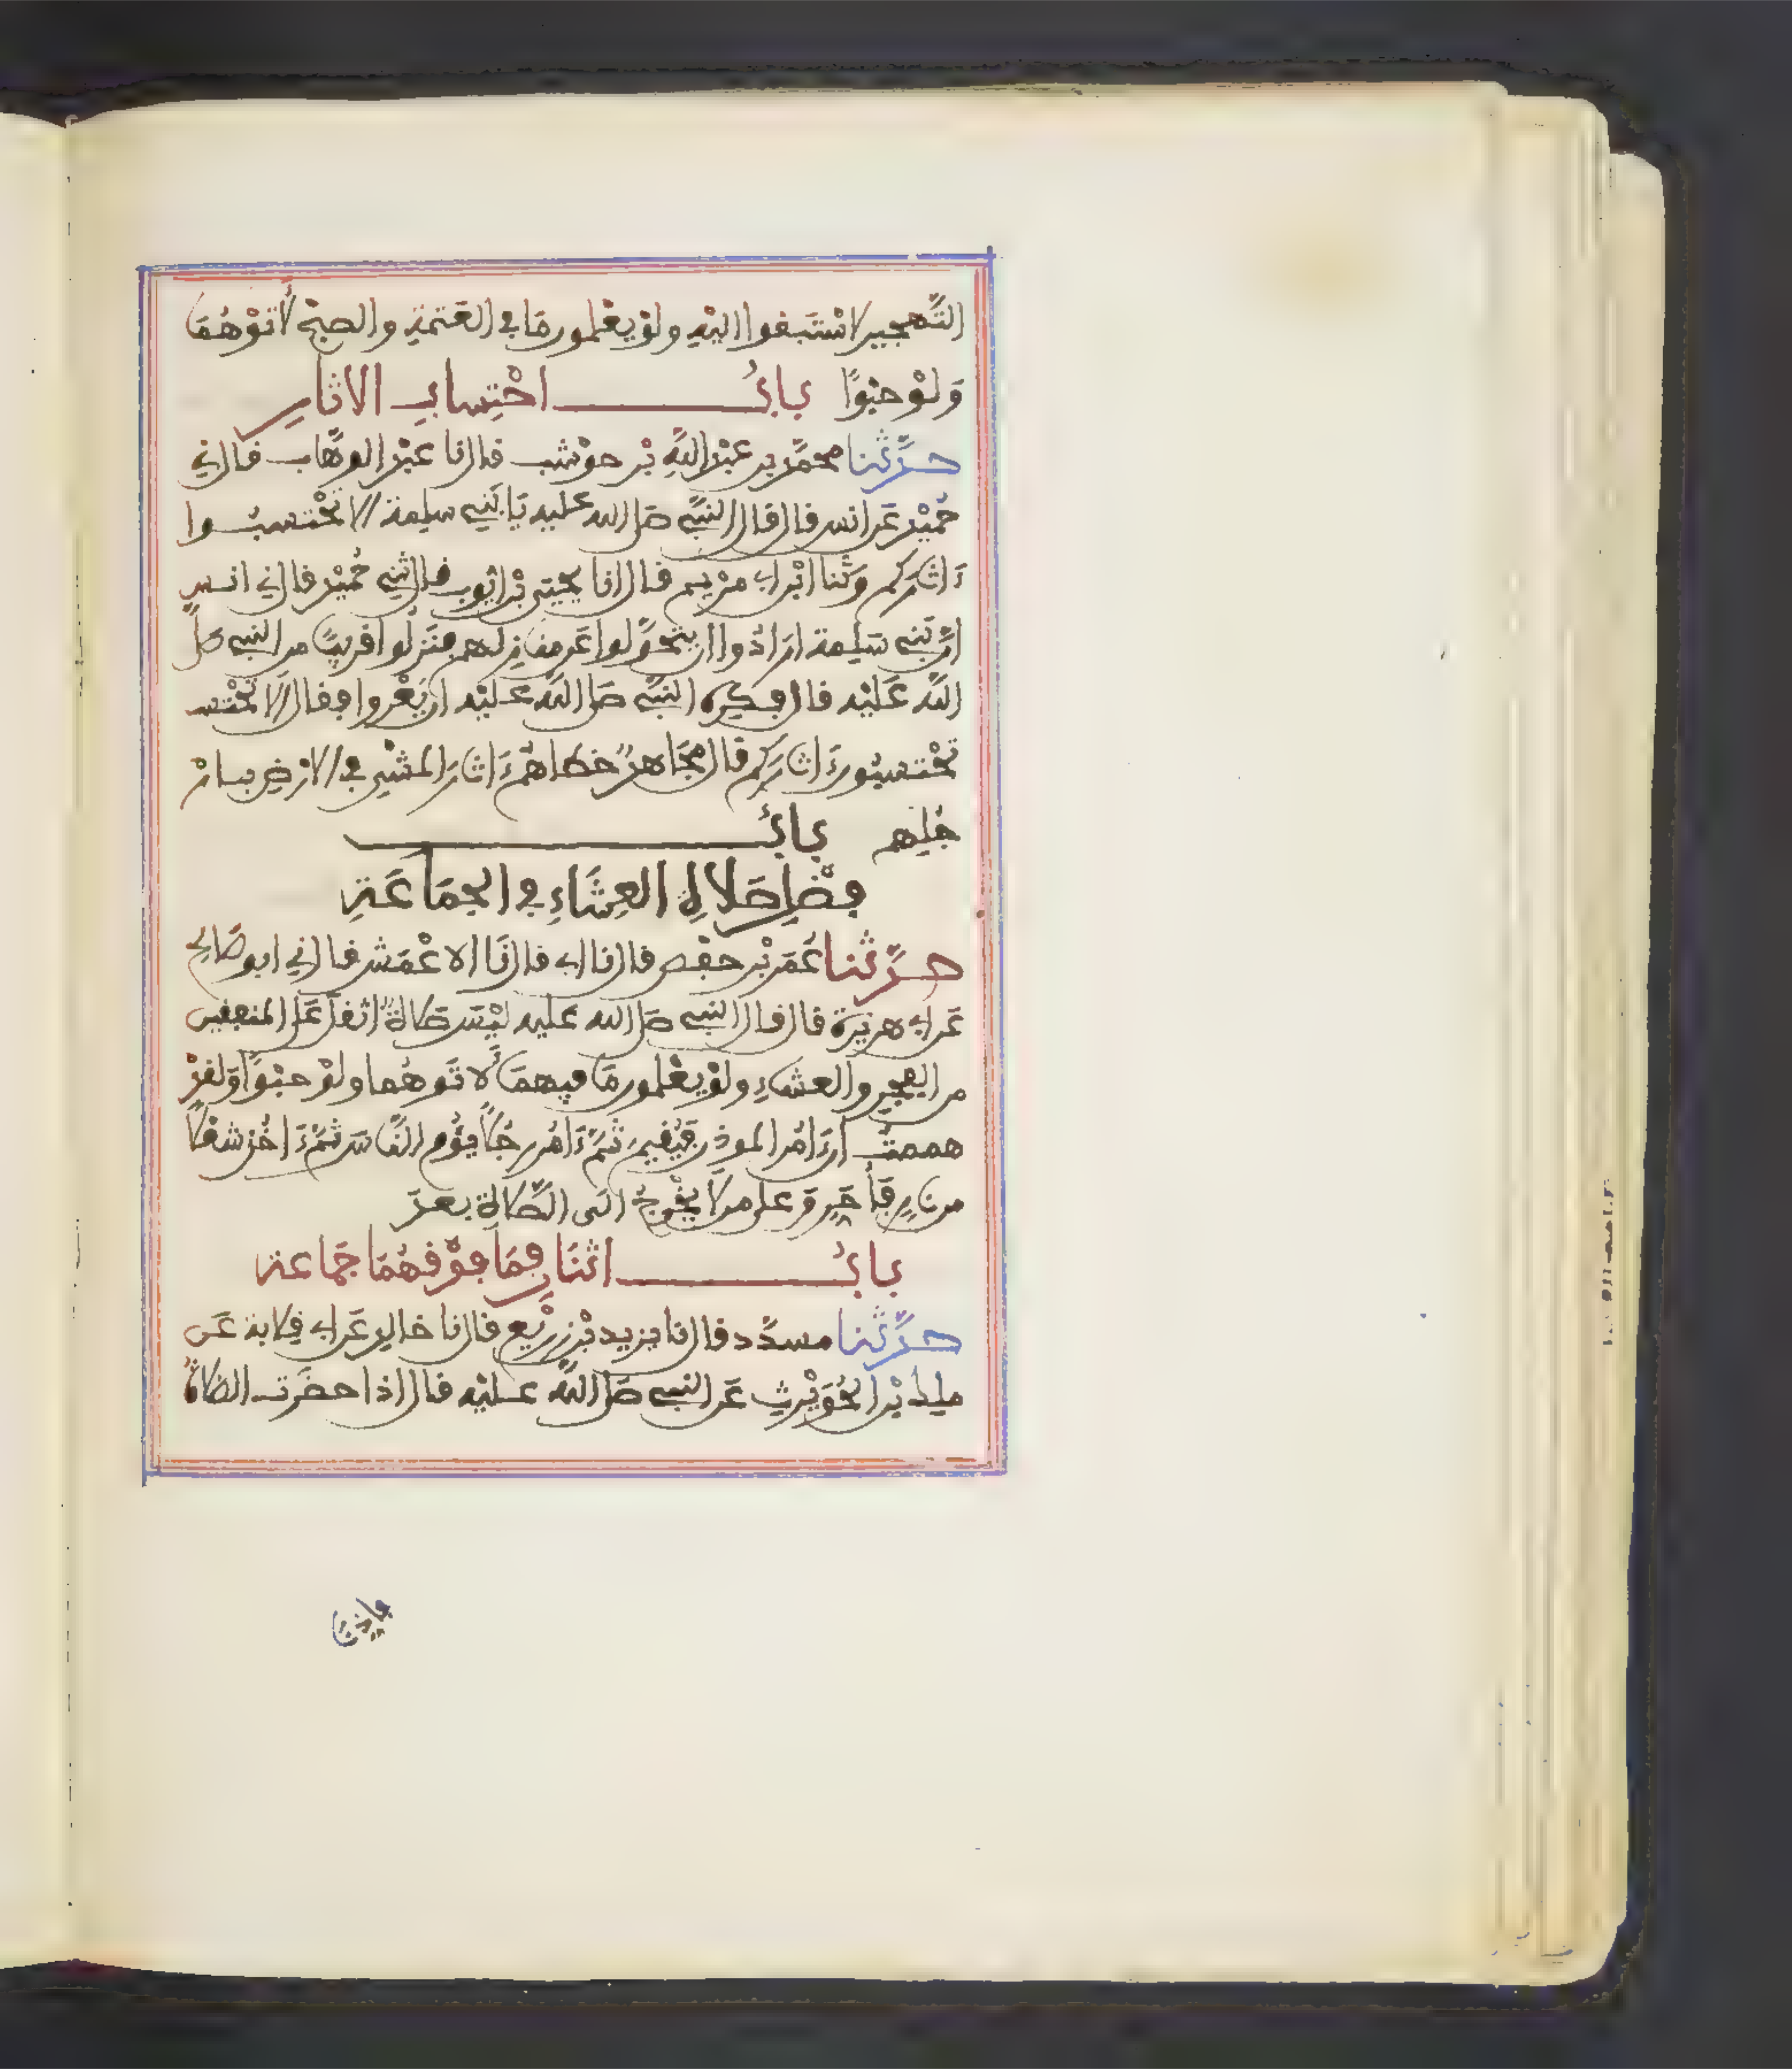 التَّهجير لاسْتَبقوا اليْهِ ولوْ يعْلمون مَا في العَتمةِ والصبْحِ لَأتوْهُمَا
وَلوْ حبْوًا بابُ احْتِسابِ الاثارِ
حدَّثنا محمَّد بن عبْد اللَّهِ بْن حوْشب قال نا عبْد الوهَّاب قال ني
حُميْد عَن انس قال قال النبيُّ صَلى الله عليه يَا بَنِي سلِمة الا تحْتسبُوا
ءَاثارَكم وَثنا ابْن ابي مرْيم قال انا يحْيَى بْن ايُّوب قال ثني حُميْد قال ني انس
انَّ بَنِي سَلِمة ارَادُوا ان يتحَوَّلوا عَن منازِلهم فنَزلُوا قريبًا من النبي صَلَّى
اللَّه عَليْه قال فكرِه النبيُّ صَلى اللَّه عَليْه ان يُعْروا فقال الا تحْتس
تحْتسبُون ءَاثارَكم قال مجَاهدٌ خطاهُمْ ءَاثارُ المشْيِ في الارْضِ بارْ
جُلِهم بابُ
فضْلِ صَلاةِ العِشَاءِ في الجمَاعَةِ
حدَّثنا عُمَر بْن حفْص قال نا ابي قال نَا الاعْمَش قال ني ابو صَالح
عَن ابي هريْرة قال قال النبي صَلى الله عليه ليْسَ صَلاةٌ اثقلَ عَلى المنافقين
من الفجرِ والعشاءِ ولوْ يعْلمون مَا فيهمَا لَأتَوهُما ولوْ حبْوًا وَلقدْ
هممتُ ان ءَامُر الموذن فيُقيمَ ثمَّ ءَامُر رجُلًا يؤُم النَّاسَ ثمَّ ءَاخُذ شعَلًا
من نارٍ فَأُحَرِّقَ على من لا يخْرجُ الَى الصَّلاةِ بعدُ
بابُ اثنَانِ فمَا فوْقهُمَا جَمَاعة
حدَّثنا مسدَّد قال نا يزيد بْن زريْع قال نا خالد عَن ابي قِلابة عَن
ملك بْن الحُوَيْرث عَن النبي صَلى اللَّه عَليْه قال اذا حضَرَت الصَّلاةُ
فاذنَا